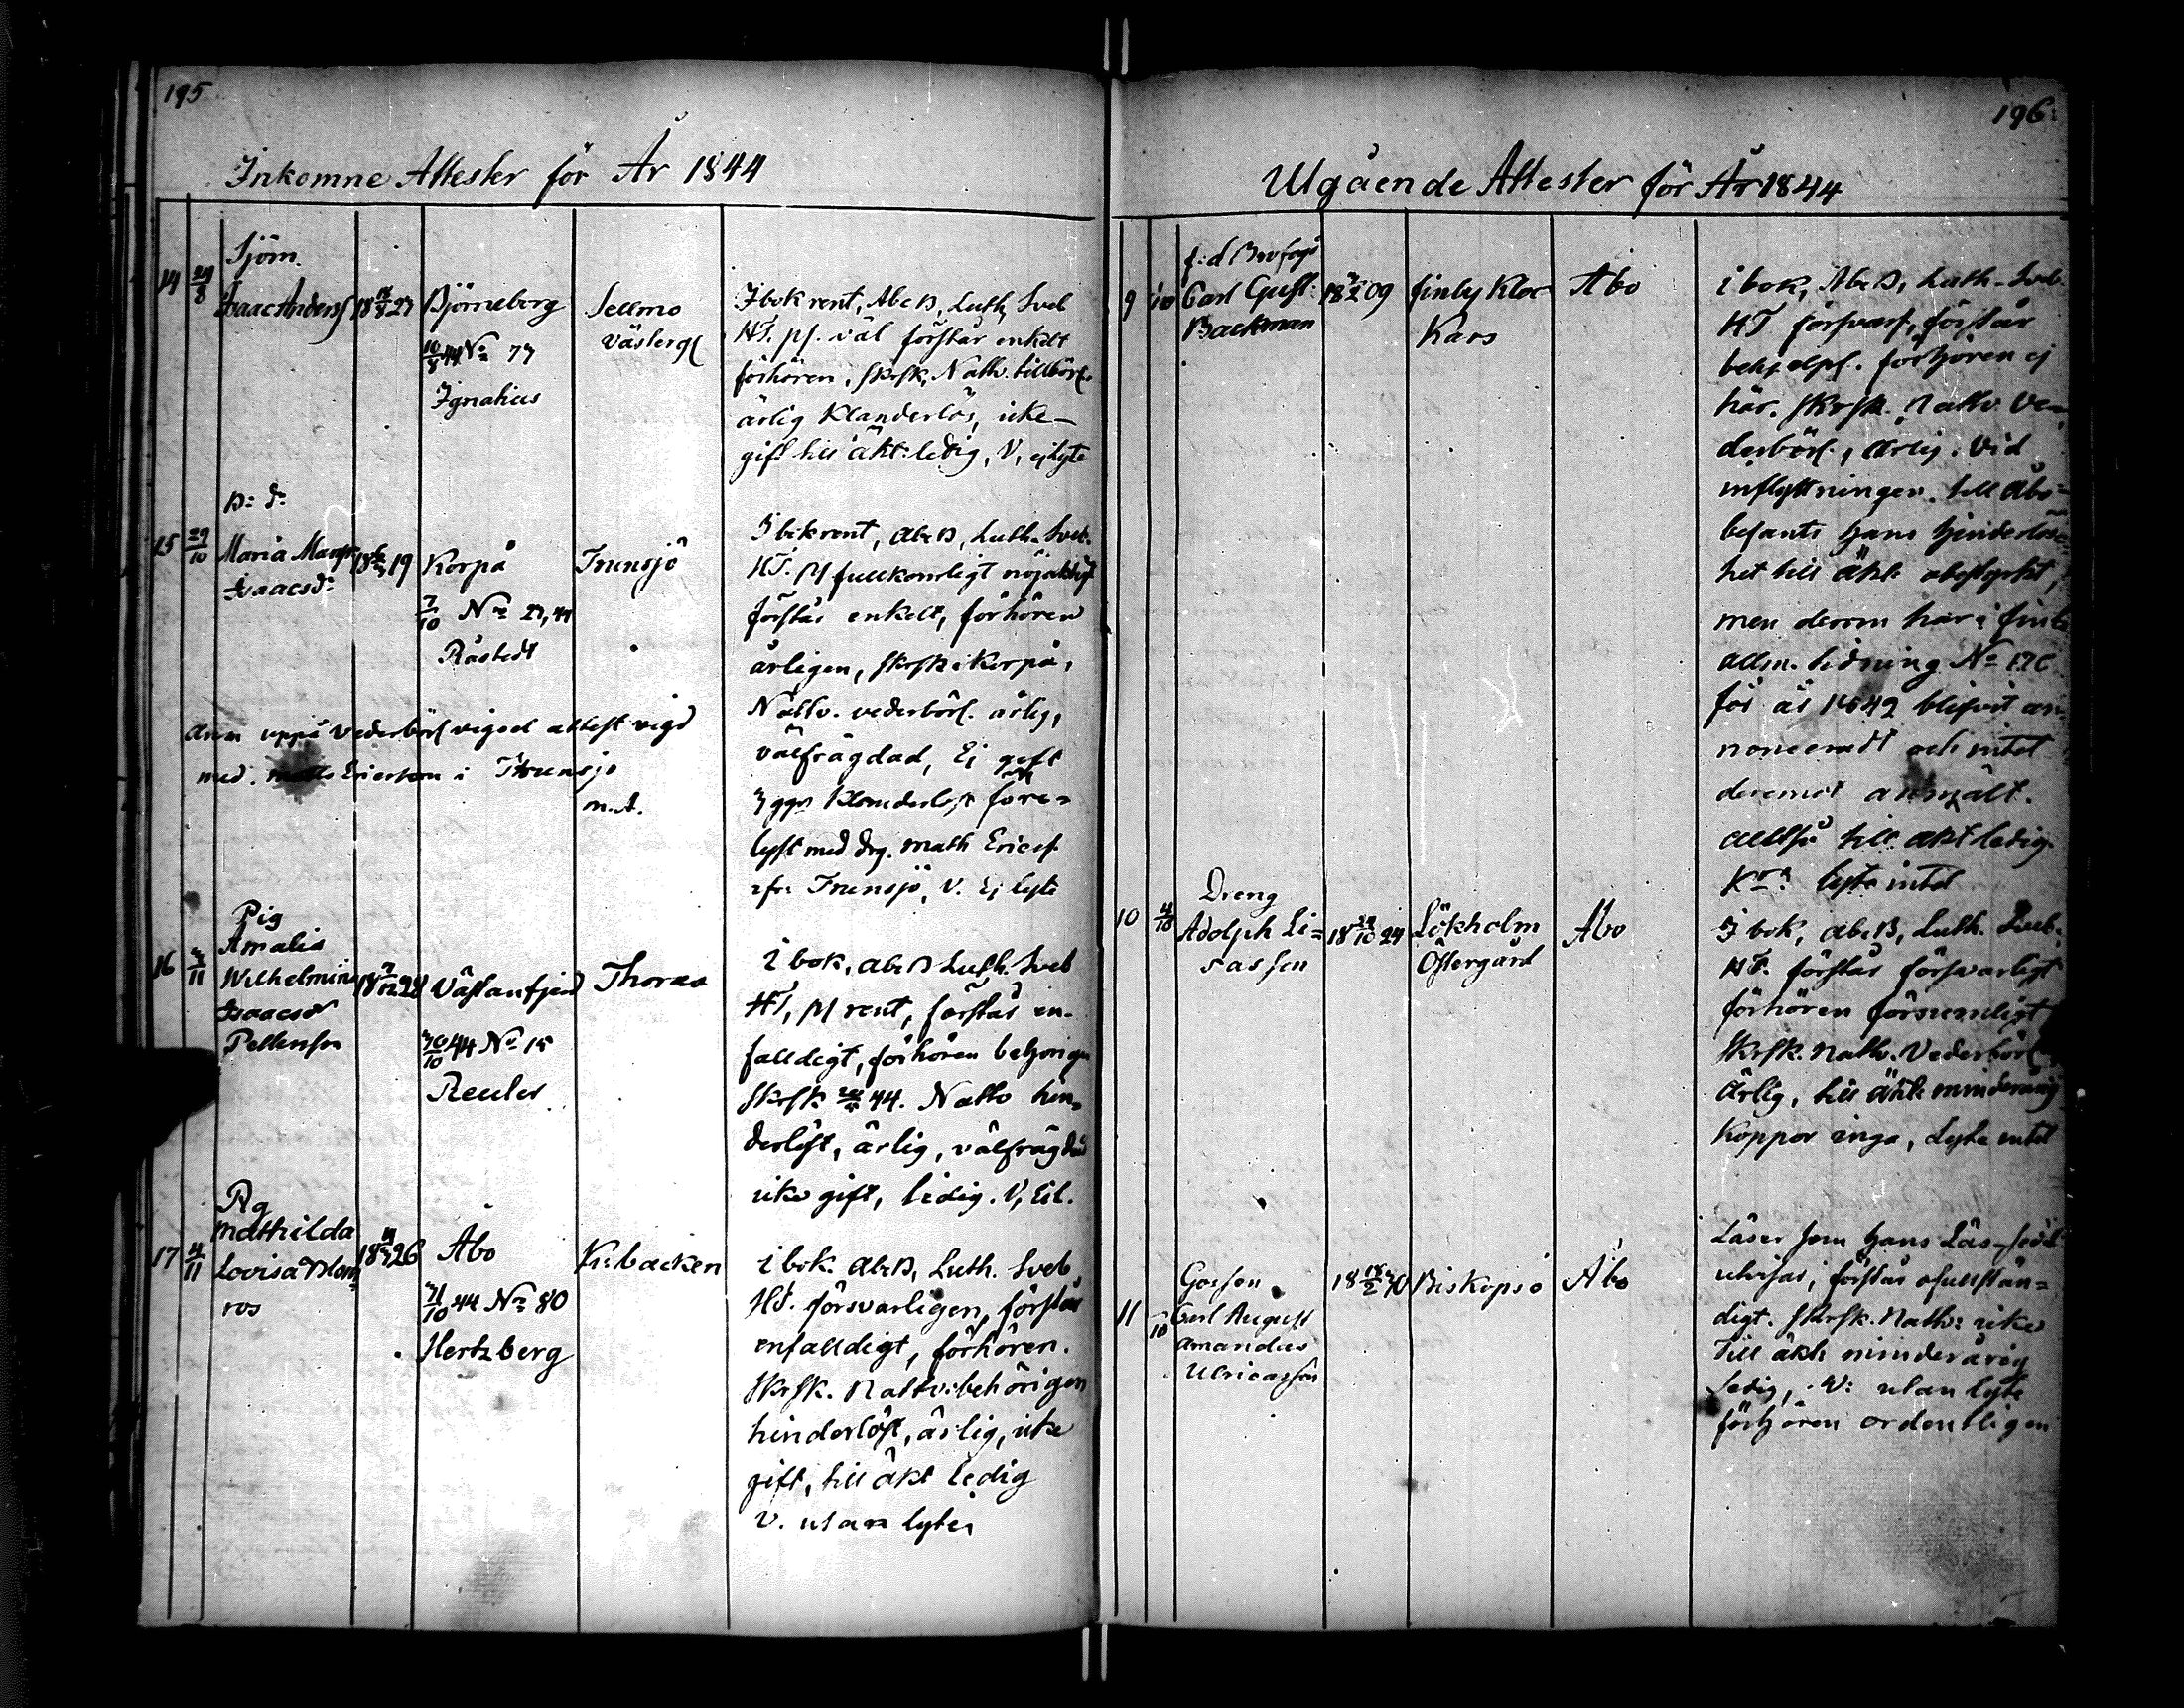 195
Inkomne Attester för År 1844
14 29/8
Sjöm.
Isaac Anderss
18 23
Björneborg
10/8 44 No 77
Ignatius
Sellmo
Västergs
I bok rent, AbcB, Luth, Sveb
HT. ps. väl förstår enkelt
förhören, Skrsk, Nattv. tillbörl.
ärlig Klanderlös, icke
gift till äkt: ledig, V, ej lyte
B: d:
15 29/10
Maria Margr
Isaacsdr
18 19
Korpå
7/10 No 27, 44
Råstedt
Trunsjö
I bok rent, AbcB, Luth. Sveb.
HT. ps fullkomligt nöjaktigt
förstår enkelt, förhören
årligen, Skrsk i Korpå,
Nattv. vederbörl. ärlig,
välfrägdad, Ej gift
3 ggr Klanderlöst före-
lyst med drg. Math Ericss
ifr: Trunsjö, V. Ej lyte
Anm uppå vederbörl vigsel attest vigd
med. Matts Ericsson i Trunsjö
m.A.
Pig
16 3/11
Amalia
Wilhelmina
Isaacsdr
Pettersson
18 28
Västanfjerd
30/10 44 No 15
Reuter
Thoras
i bok, AbcB Luth. Sveb
HT, ps rent, förstår en-
falldigt, förhören behörigen
Skrsk 44. Nattv hin-
derlöst, ärlig, välfrägdad
icke gift, ledig. V, Eil.
Pig
17 4/11
Mathilda
Lovisa Blom
ros
18 26
Åbo
31/10 44 No 80
Hertzberg
K:backen
i bok. AbcB, Luth. Sveb
HT. försvarligen, förstår
enfalldigt, förhören.
Skrsk. Nattv: behörigen
hinderlöst, ärlig, icke
gift, till äkt ledig
V. utan lyte
196
Utgående Attester för År 1844
f:d Brofogd
9 10
Carl Gust:
Backman
18 09
finby Kloc
Kars
Åbo
i bok, AbcB, Luth. Sveb.
HT försvarl, förstår
behjelpl. förhören ej
här. Skrsk. Nattv. ve-
derbörl., ärlig. Vid
inflyttningen till Åbo
befants hans hinderlös-
het till äkt obestyrkt,
men derom har i finl
allm. tidning No
för år 1842 blifvit an-
nonceradt och intet
deremot anmält.
alltså till äkt ledig.
lyte intet
10 4/10
Dreng
Adolph Li-
sassen
18 24/10 24
Lökholm
Östergård
Åbo
I bok, AbcB, Luth. Sveb.
HT. förstår försvarligt
förhören försumligt
Skrsk. Nattv. Vederbörl
ärlig, till äkt minderårig
Koppor inga, Lyte intet
11
Gossen
Carl August
Amandus
Ulricasson
18 18/2 30
Biskopsö
Åbo
Läser som hans Läs-sedel
utvisar, förstår ofullstän-
digt. Skrsk. Nattv: icke
Till äkt minderårig
ledig, V: utan lyte
förhören ordentligen